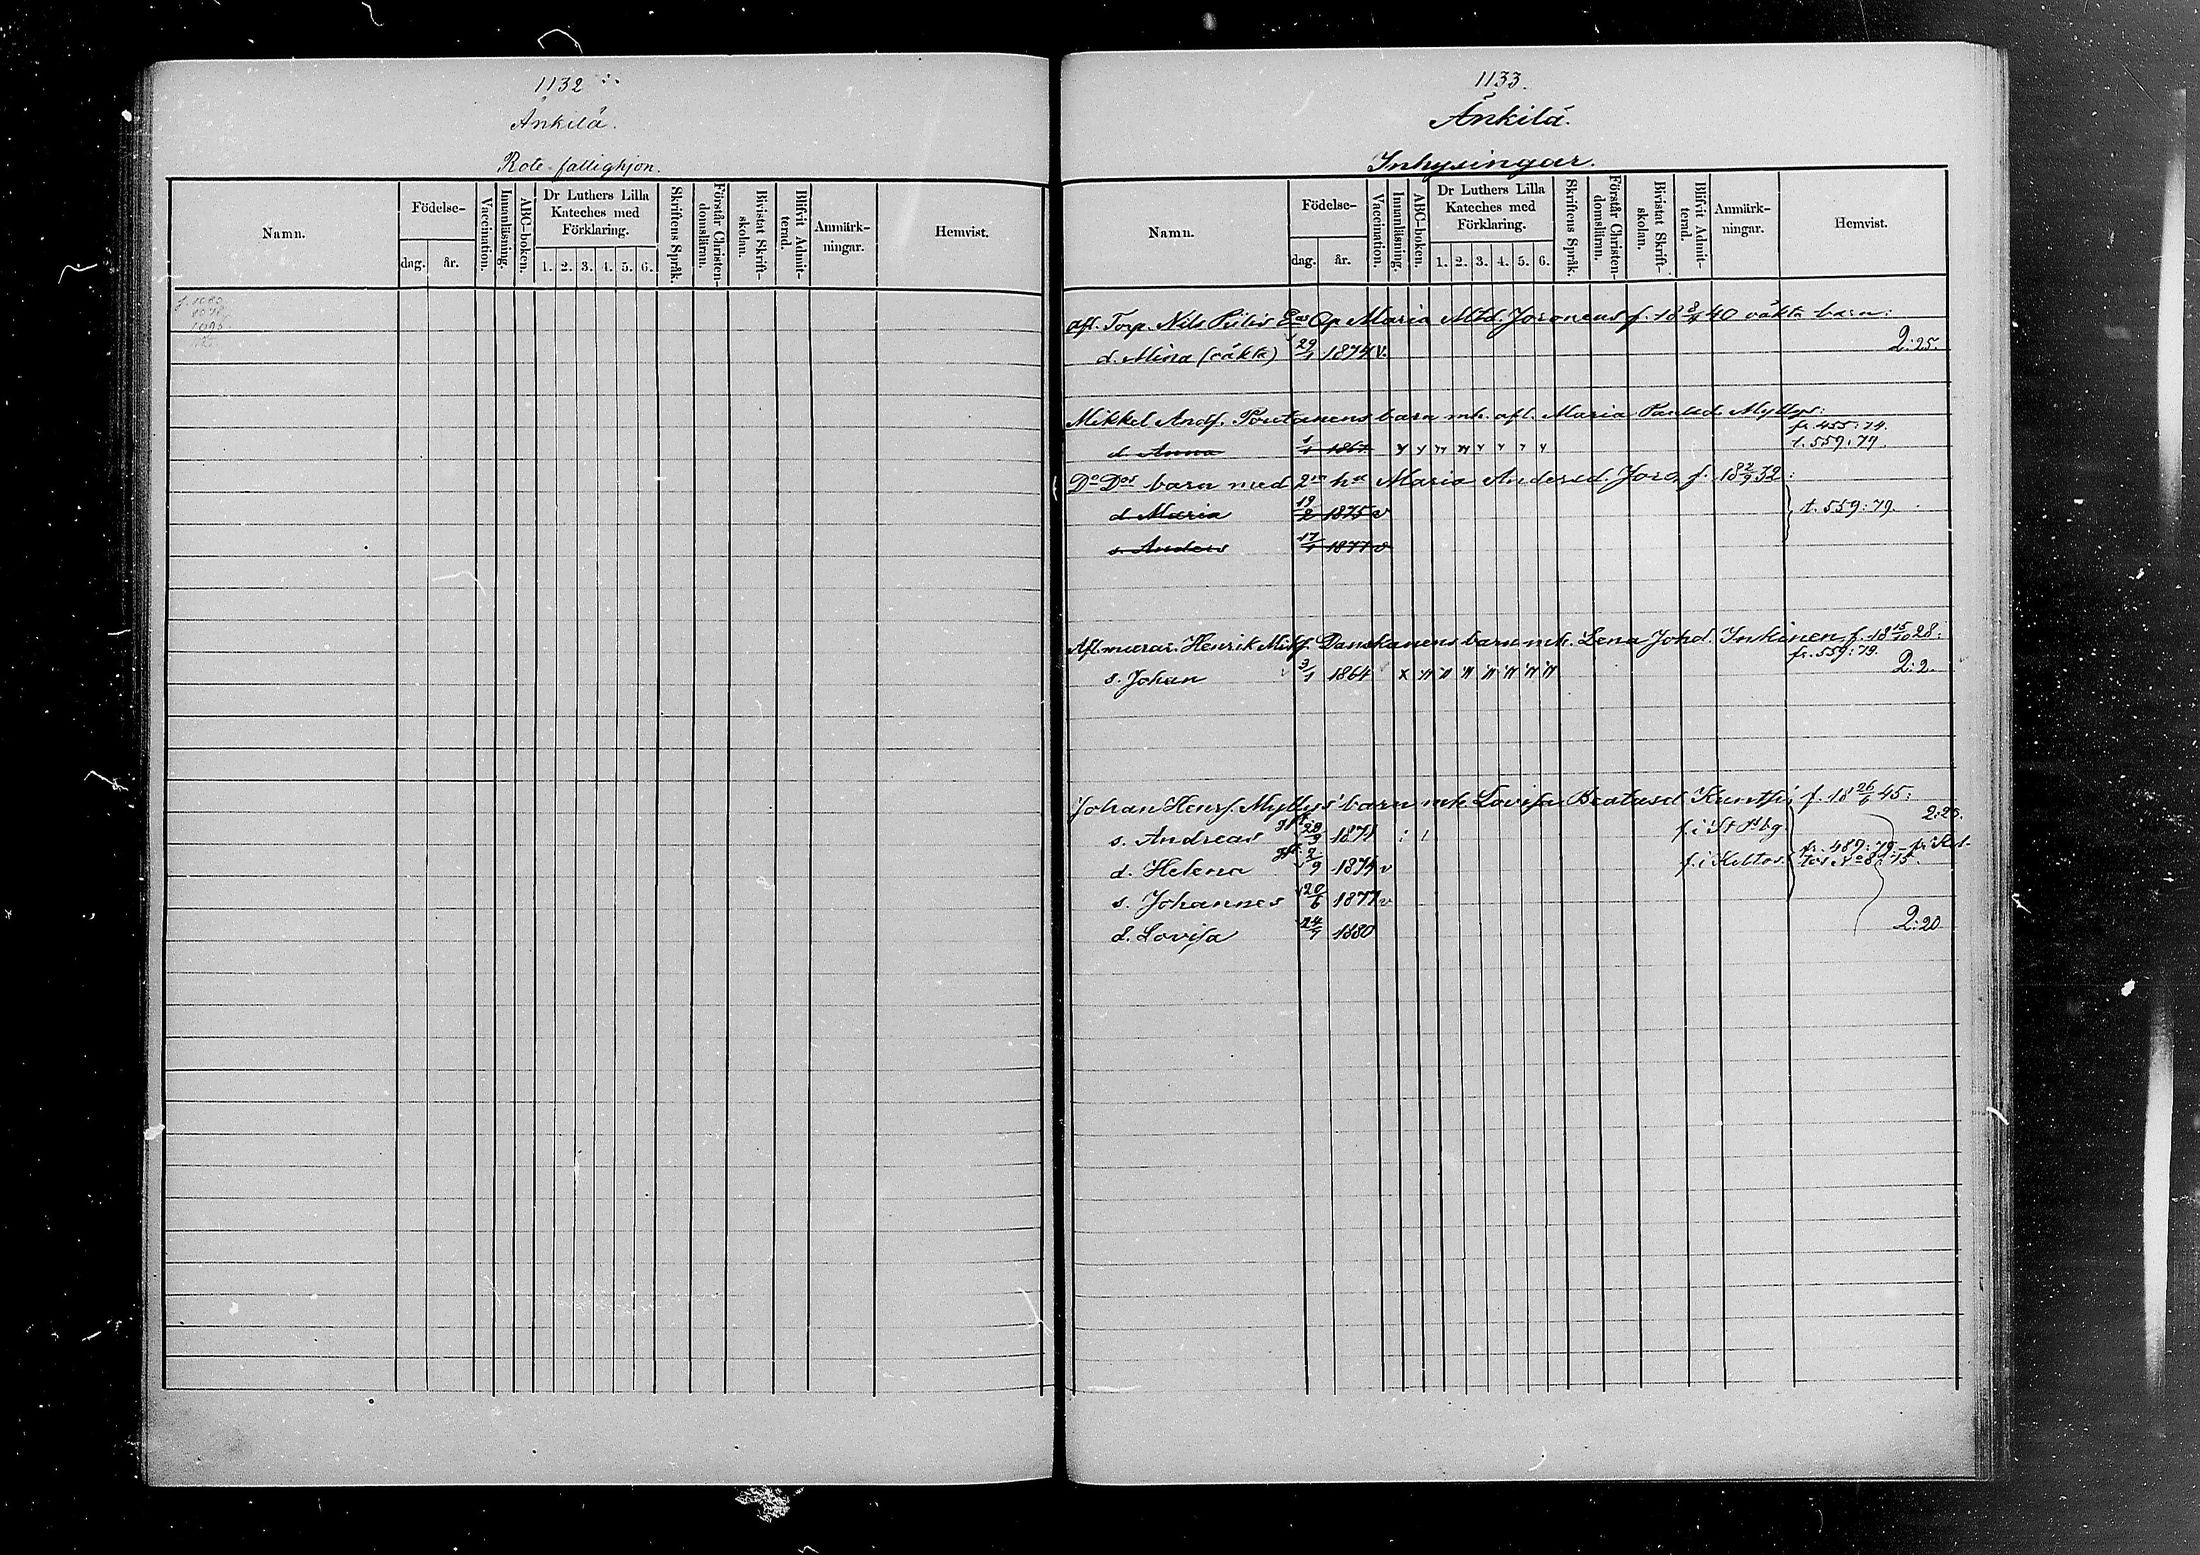 1132
Änkilä.
Rote-fattighjon.
Namn.
Födelse-
dag.
år.
Vaccination.
Innanläsning.
ABC-boken.
Dr Luthers Lilla
Kateches med
Förklaring.
1. 2. 3. 4. 5. 6.
Skriftens Språk.
Förstår Christen-
domsläran.
Bivistat Skrift-
skolan.
Blifvit Admit-
terad.
Anmärk-
ningar.
Hemvist.
1133.
Änkilä.
Inhysingar.
Namn.
Födelse-
dag.
år.
Vaccination.
Innanläsning.
ABC-boken.
Dr Luthers Lilla
Kateches med
Förklaring.
1. 2. 3. 4. 5. 6.
Skriftens Språk.
Förstår Christen-
domsläran.
Bivistat Skrift-
skolan.
Blifvit Admit-
terad.
Anmärk-
ningar.
Hemvist.
afl. Torp. Nils Maria Joronens f. 18 8/4 40 oäkta barn:
d. Mina (oäkta) 29/1 1874 v. 2:25.
Mikkel Andf. Poutanens barn mh. afl. Maria Paulsd. Myllys:
fr. 455:74.
d. Anna 1/1 1867 t. 559:79.
Do Dos barn med 2n ha Maria Andersd. Joro, f. 18 2/9 32:
d. Maria 19/2 1875 v t. 559:79.
s. Anders 17/1 1877 v
Afl. murar. Henrik Mikf. Danskanens barn mh. Lena Johd. Inkinen f. 18 15/10 28:
fr. 559:79.
s. Johan 3/1 1864 x 2:2.
Johan Henrf. Myllys' barn mh. Lovisa Beatasd. Kunttu, f. 18 26/6 45:
2:20.
s. Andreas 28/9 1871 f. i St Pbg
fr. 489:79
d. Helena 2/9 1874 v f. i Keltos
s. Johannes 20/6 1877 v
d. Lovisa 24/7 1880 2:20